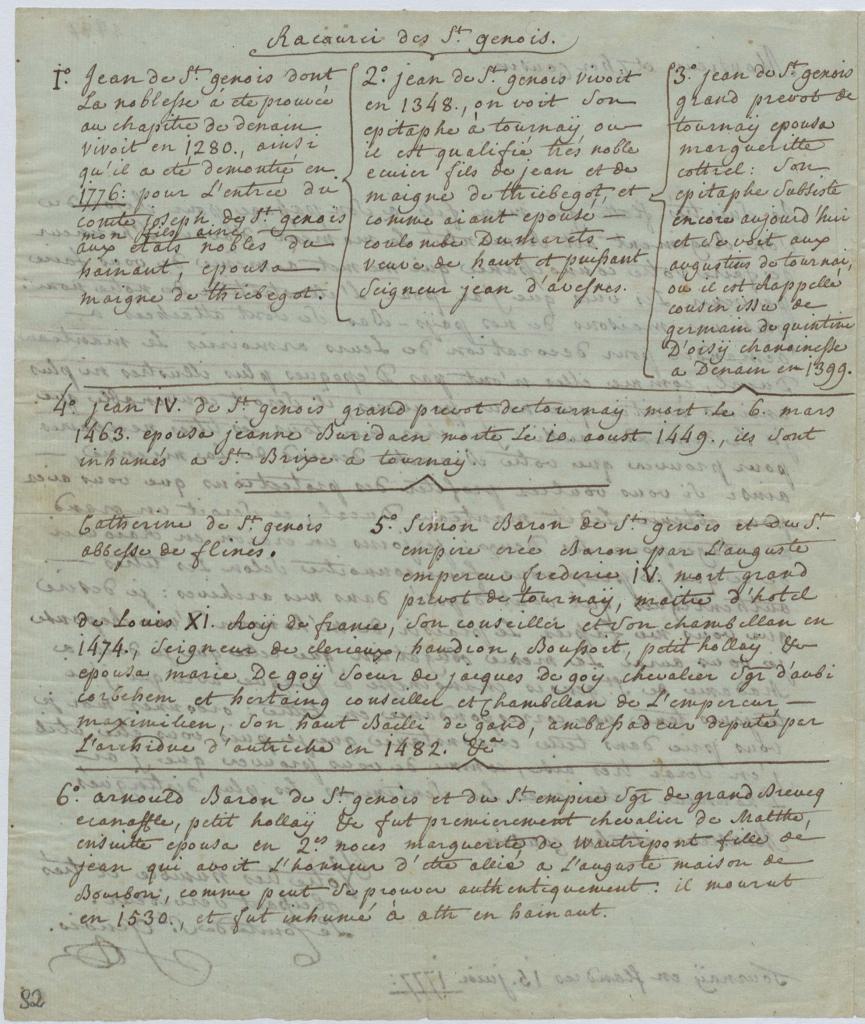 Racourci des St. genois.
1º jean de St. genois dont
La noblesse à eté prouvée
au chapitre de denain
vivoit en 1280., ainsi
qu'il a eté demontré en
1776: pour L'entrée du
comte joseph de St. genois
mon fils ainé
aux etats nobles du
hainaut, epousa
maigne de thiebegot.
2º jean de St. genois vivoit
en 1348., on voit son
epitaphe à tournaÿ ou
il est qualifié trés noble
ecuier fils de jean et de
maigne de thiebegot, et
comme aiant epousé
coulombe Dumarets
veuve de haut et puissant
Seigneur jean d'avesnes.
3º jean de St. genois
grand prevot de
tournaÿ epousa
margueritte
cottrel: son
epitaphe subsiste
encore aujourd'hui
et se voit aux
augustins de tournai,
ou il est rappellé
cousin issu de
germain de quintine
D'oisÿ chanoinesse
a Denain en 1399.
4º jean IV. de St. genois grand prevot de tournaÿ mort Le 6. mars
1463. epousa jeanne Buridaen morte Le 10. aoust 1449., ils sont
inhumés a St. Brixe à tournaÿ.
Catherine de St. genois
abbesse de flines.
5º Simon Baron de St. genois et du St.
empire créé Baron par L'auguste
empereur frederic IV. mort grand
prevot de tournaÿ, maitre d'hotel
de Louis XI. Roÿ de france, son conseiller et son chambellan en
1474., Seigneur de clerieux, haudion, Boussoit, petit hollaÿ &c
epousa marie De goÿ soeur de jacques de goÿ chevalier Sgr d'aubi
corbehem et hertaing conseiller et chambellan de L'empereur
maximilien, son haut Bailli de gand, ambassadeur deputé par
L'archiduc d'autriche en 1482. &a
6º arnould Baron de St. genois et du St. empire Sgr de grand Breucq
ecanaffle, petit hollaÿ &c fut premierement chevalier de Malthe,
ensuite epousa en 2es noces marguerite de Wautripont fille de
jean qui avoit L'honneur d'etre allié a L'auguste maison de
Bourbon, comme peut se prouver authentiquement: il mourut
en 1530., et fut inhumé à ath en hainaut.
82